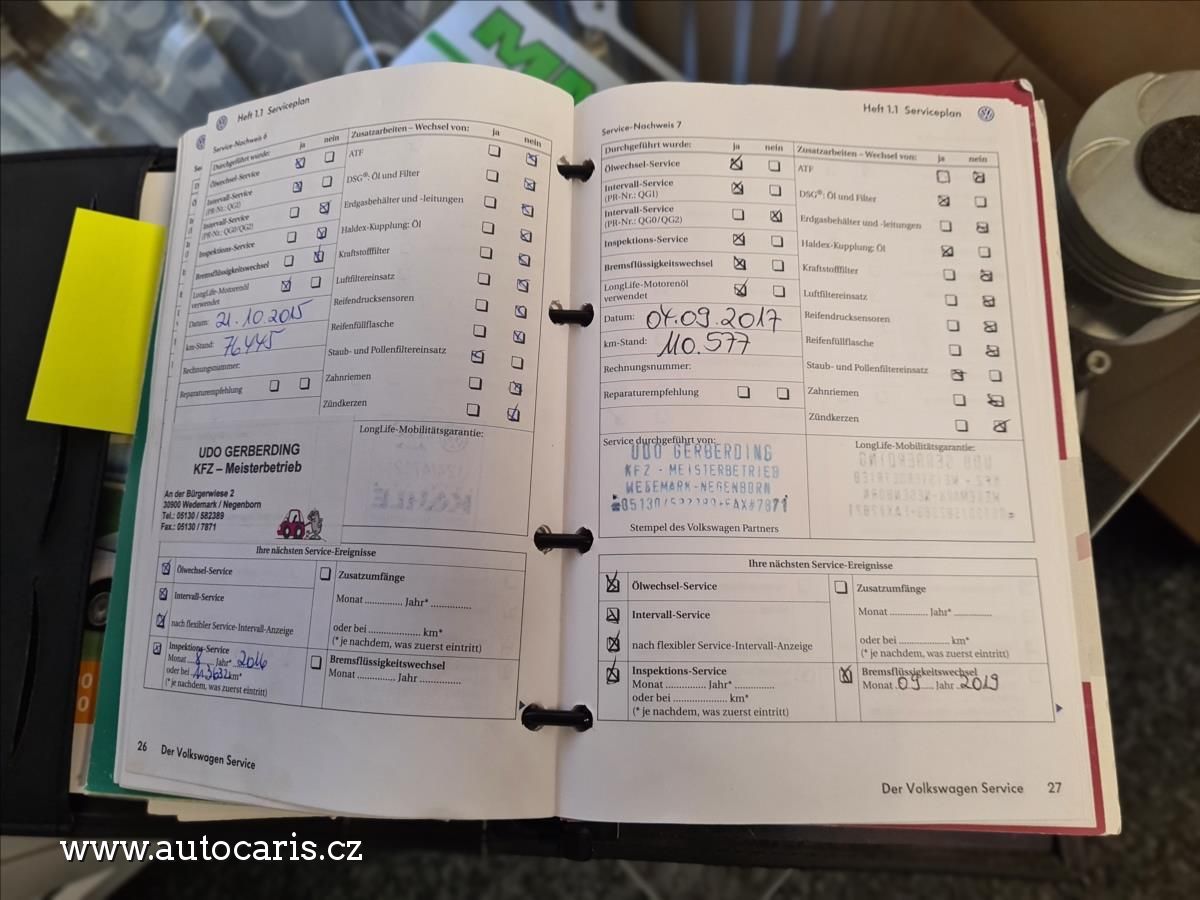 Heft 1.1 Serviceplan
Service-Nachweis 6
Durchgeführt wurde: ja nein
Ölwechsel-Service
Intervall-Service
(PR-Nr.: QG1)
Intervall-Service
(PR-Nr.: QG0/QG2)
Inspektions-Service
Bremsflüssigkeitswechsel
LongLife-Motorenöl
verwendet
Datum: 21.10.2015
km-Stand: 76445
Rechnungsnummer:
Reparaturempfehlung
Zusatzarbeiten – Wechsel von: ja nein
ATF
DSG®: Öl und Filter
Erdgasbehälter und -leitungen
Haldex-Kupplung: Öl
Kraftstofffilter
Luftfiltereinsatz
Reifendrucksensoren
Reifenfüllflasche
Staub- und Pollenfiltereinsatz
Zahnriemen
Zündkerzen
UDO GERBERDING
KFZ – Meisterbetrieb
An der Bürgerwiese 2
30900 Wedemark / Negenborn
Tel.: 05130 / 582389
Fax.: 05130 / 7871
LongLife-Mobilitätsgarantie:
Ihre nächsten Service-Ereignisse
Ölwechsel-Service
Intervall-Service
nach flexibler Service-Intervall-Anzeige
Inspektions-Service
Monat 8 Jahr* 2016
oder bei km*
(* je nachdem, was zuerst eintritt)
Zusatzumfänge
Monat .............. Jahr* ..............
oder bei .................... km*
(* je nachdem, was zuerst eintritt)
Bremsflüssigkeitswechsel
Monat .............. Jahr ..............
26 Der Volkswagen Service
Heft 1.1 Serviceplan
Service-Nachweis 7
Durchgeführt wurde: ja nein
Ölwechsel-Service
Intervall-Service
(PR-Nr.: QG1)
Intervall-Service
(PR-Nr.: QG0/QG2)
Inspektions-Service
Bremsflüssigkeitswechsel
LongLife-Motorenöl
verwendet
Datum: 04.09.2017
km-Stand: 110.577
Rechnungsnummer:
Reparaturempfehlung
Zusatzarbeiten – Wechsel von: ja nein
ATF
DSG®: Öl und Filter
Erdgasbehälter und -leitungen
Haldex-Kupplung: Öl
Kraftstofffilter
Luftfiltereinsatz
Reifendrucksensoren
Reifenfüllflasche
Staub- und Pollenfiltereinsatz
Zahnriemen
Zündkerzen
Service durchgeführt von:
UDO GERBERDING
KFZ - MEISTERBETRIEB
WEDEMARK-NEGENBORN
☎05130/582389*FAX#7871
Stempel des Volkswagen Partners
LongLife-Mobilitätsgarantie:
Ihre nächsten Service-Ereignisse
Ölwechsel-Service
Intervall-Service
nach flexibler Service-Intervall-Anzeige
Inspektions-Service
Monat .............. Jahr* ..............
oder bei .................... km*
(* je nachdem, was zuerst eintritt)
Zusatzumfänge
Monat .............. Jahr* ..............
oder bei .................... km*
(* je nachdem, was zuerst eintritt)
Bremsflüssigkeitswechsel
Monat 09 Jahr 2019
Der Volkswagen Service 27
www.autocaris.cz